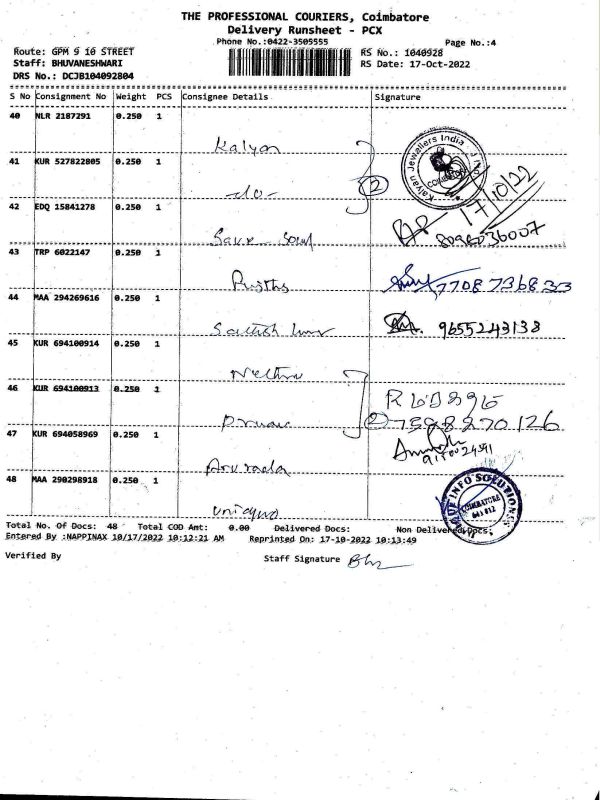 THE PROFESSIONAL COURIERS, Coimbatore
Delivery Runsheet - PCX
Phone No.:0422-3505555
Page No.:4
Route: GPM 9 10 STREET
RS No.: 1040928
Staff: BHUVANESHWARI
RS Date: 17-Oct-2022
DRS No.: DCJB104092804
S No Consignment No Weight PCS Consignee Details Signature
40 NLR 2187291 0.250 1
Kalyan
Kalyan Jewellers India
41 KUR 527822805 0.250 1
-do- 2
17/10/22
42 EDQ 15841278 0.250 1
8098036007
43 TRP 6022147 0.250 1
7708736833
44 MAA 294269616 0.250 1
9655243138
45 KUR 694100914 0.250 1
Nethra
46 KUR 694100913 0.250 1
2 7598870126
47 KUR 694058969 0.250 1
48 MAA 290298918 0.250 1
INFO SOLUTIONS
COIMBATORE
641 012
Total No. Of Docs: 48 Total COD Amt: 0.00 Delivered Docs: Non Delivered Docs:
Entered By :NAPPINAX 10/17/2022 10:12:21 AM Reprinted On: 17-10-2022 10:13:49
Verified By Staff Signature